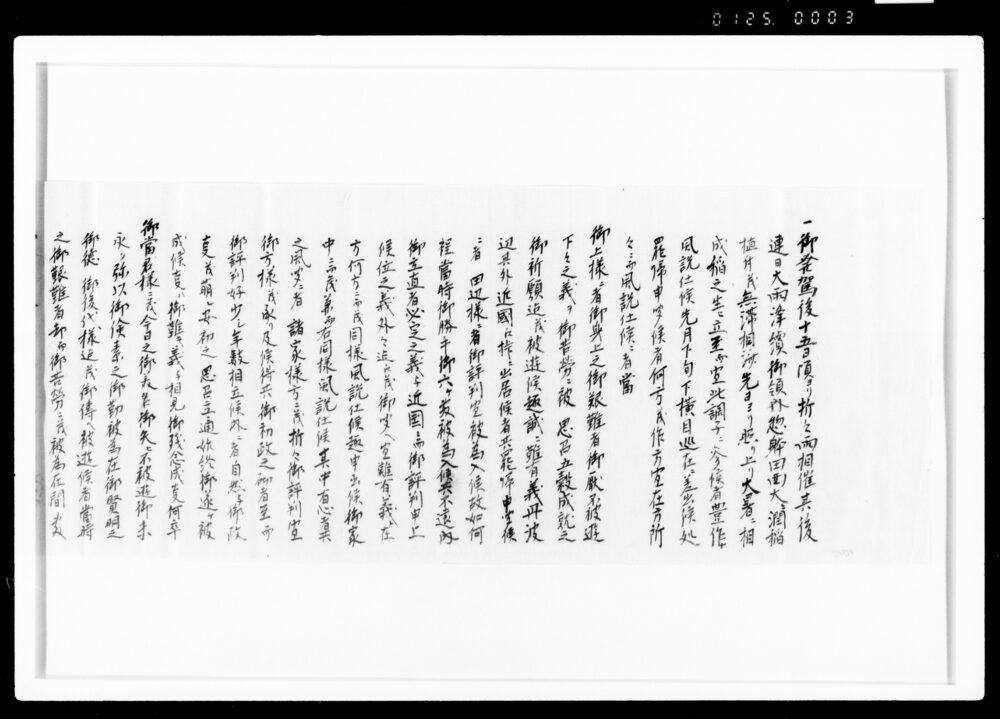 0125. 0003
一御発駕後十五日頃ゟ折々雨相催其後
連日大雨洋續御領外惣幹田西大ニ潤稲
植付茂無滞相済先日ヨリ照り上り大暑ニ相
成稲之生立至而宜此調子ニ参候者豊作与
風説仕候先月下旬下横目巡在差出候処
罷帰申出候者何方茂作方宜在方所
々ニ而風説仕候ニ者當
御上様ニ者御身上之御艱難者御厭不被遊
下々之義ヲ御苦労ニ被 思召五穀成就之
御祈願迄茂被遊候趣誠ニ難有義丹波
辺其外近國江持ニ出居候者共罷帰申出候
ニ者 田辺様ニ者御評判宜被為入候政如何
程當時御勝手御六ヶ敷被為入候共不遠内
御立直者必定之義与近国ニ而御評判申上
候位之義外々迄茂御出入宜難有義与在
方何方ニ而茂同様風説仕候趣申出候御家
中ニ而茂弟而右同様風説仕候其中百忠者共
之風聞ニ者 諸家様方ニ茂折々御評判宜
御方様茂承り及候得共御初政之而者至而
御評判好少シ年数相立候外ニ者自然与御政
事茂萌シ安初之 思召立通始終御遂ヶ被
成候事ハ御難シ義与相見御残念成事何卒
御當君様ニ茂今日之御美名御失ヒ不被遊御末
永ク弥以御倹素之御勤被為在御賢明之
御徳 御後代様迄茂御傳ヘ被遊候者當時
之御艱難者却而御苦労ニ茂被為在間敷